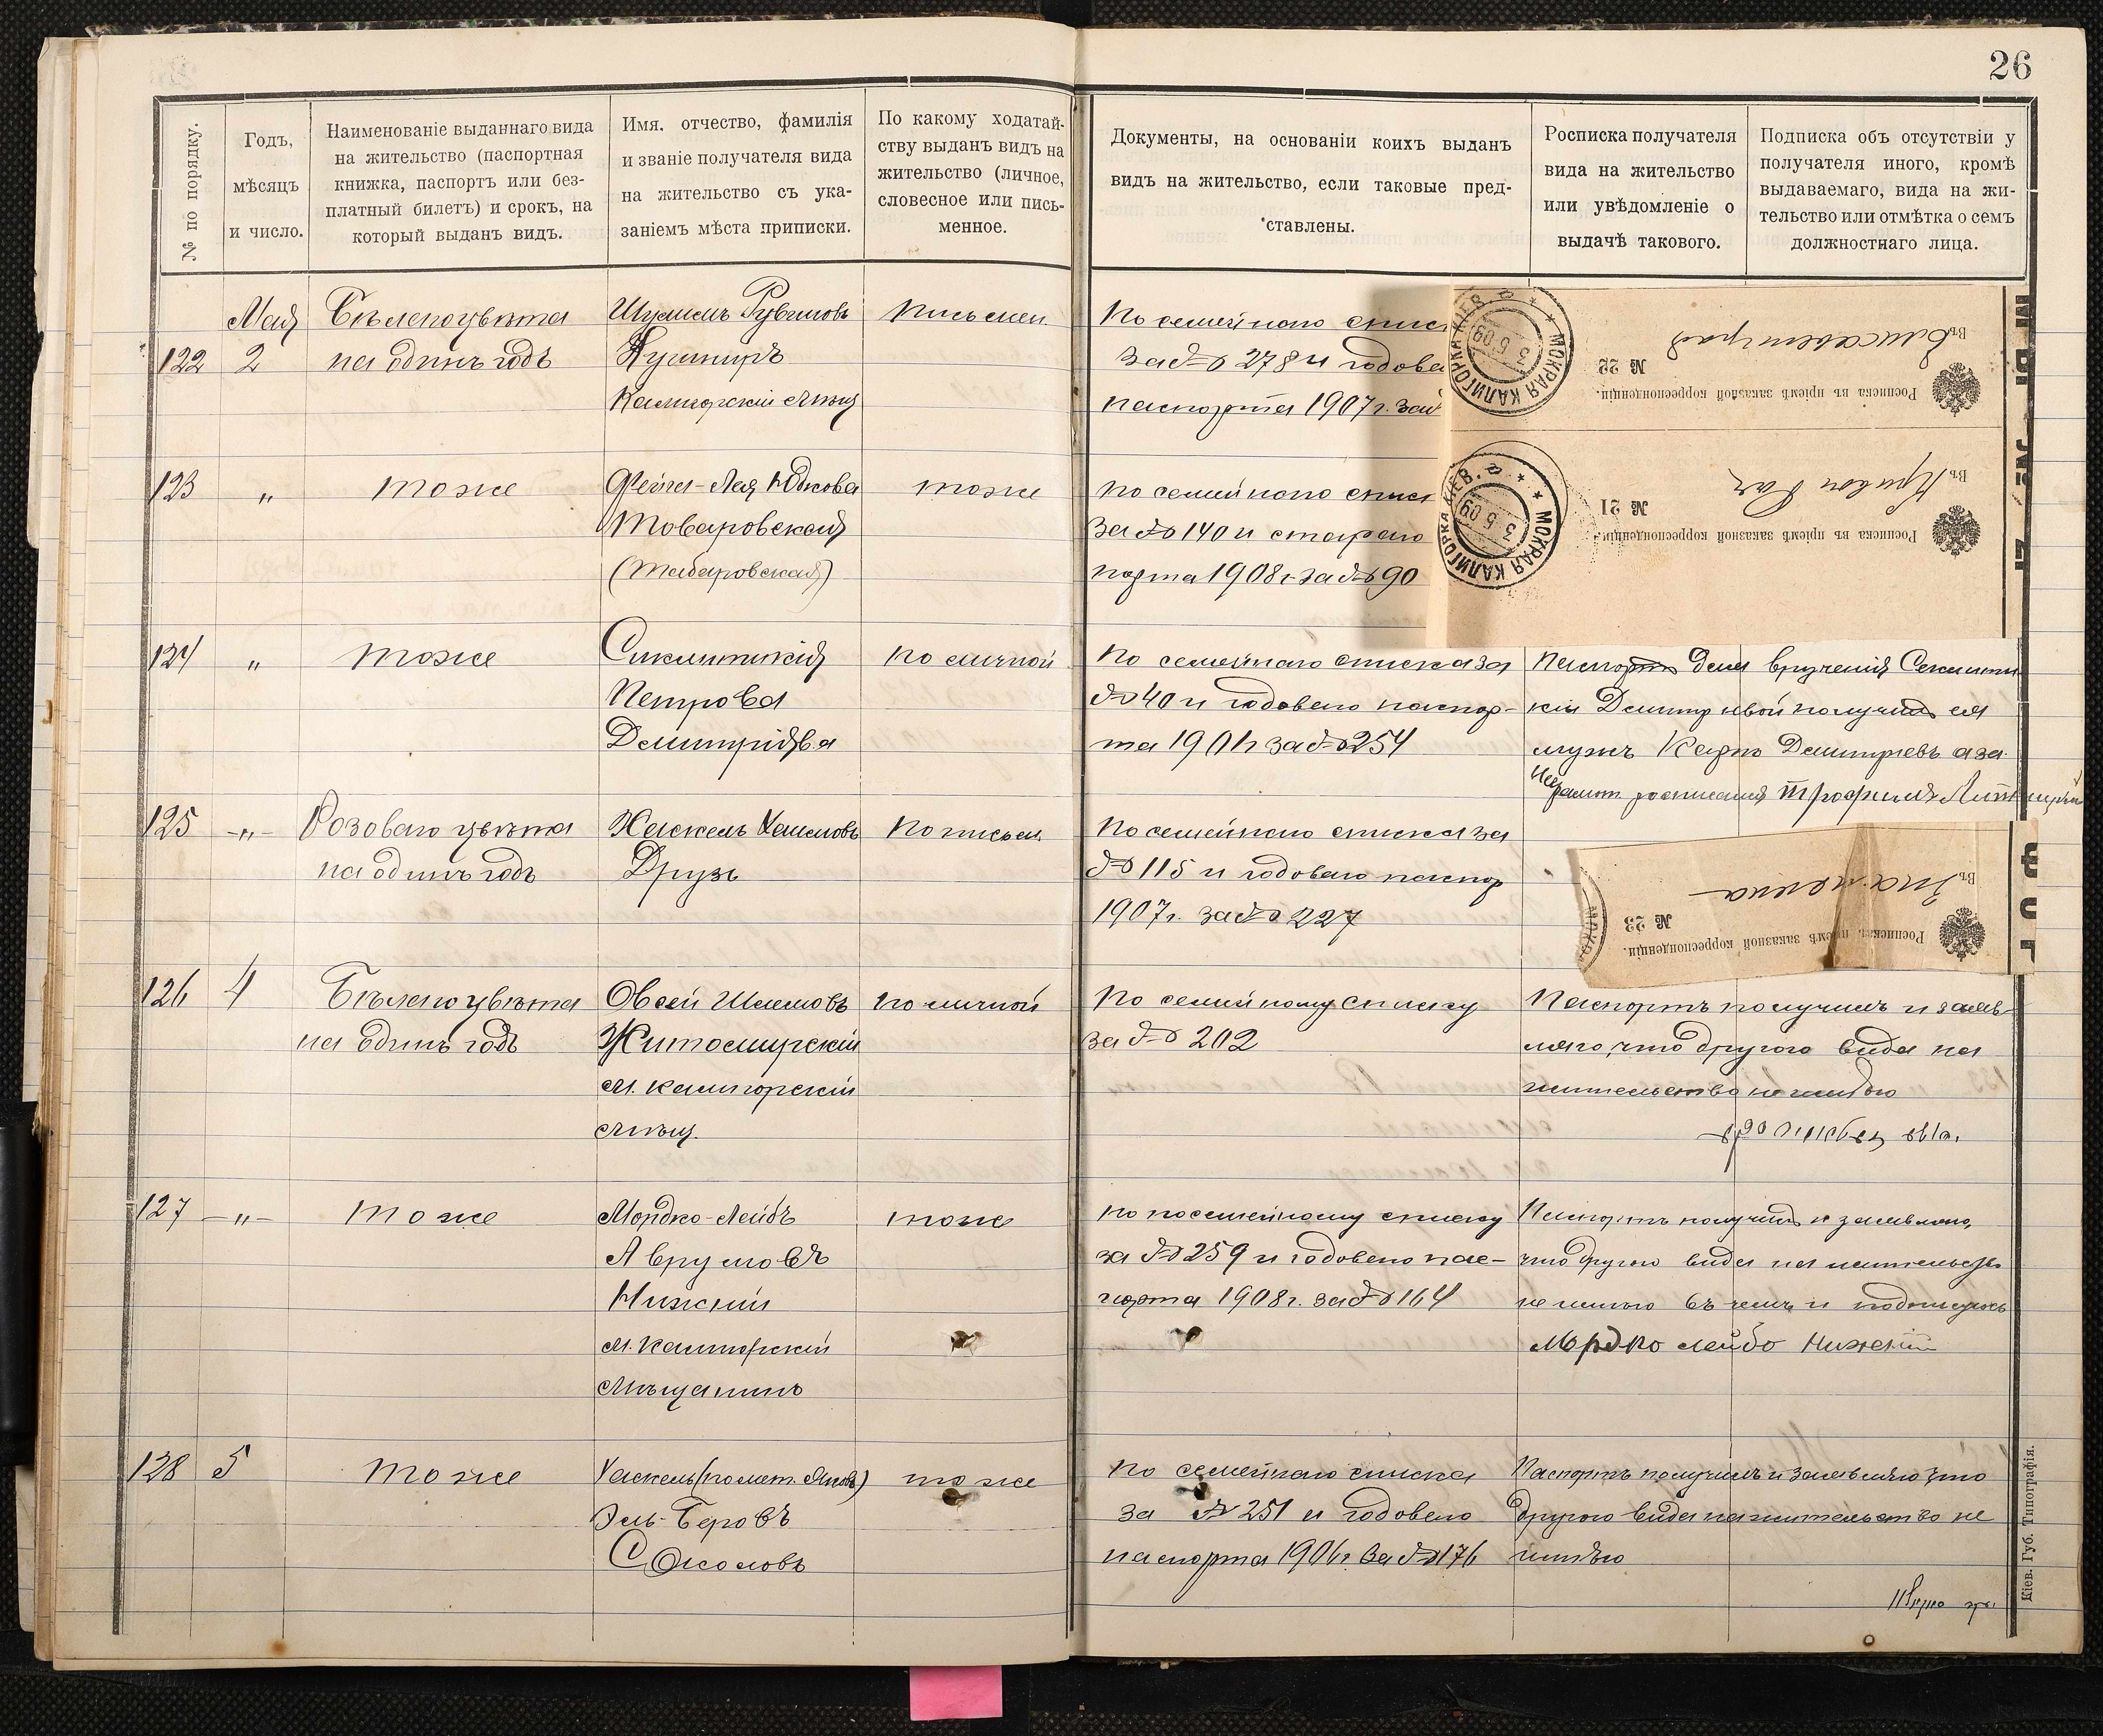 26
№ по порядку.
Годъ,
мѣсяцъ
и число.
Наименованіе выданнаго вида
на жительство (паспортная
книжка, паспортъ или без-
платный билетъ) и срокъ, на
который выданъ видъ.
Имя, отчество, фамилія
и званіе получателя вида
на жительство съ ука-
заніемъ мѣста приписки.
По какому ходатай-
ству выданъ видъ на
жительство (личное,
словесное или пись-
менное.
Документы, на основаніи коихъ выданъ
видъ на жительство, если таковые пред-
ставлены.
Росписка получателя
вида на жительство
или увѣдомленіе о
выдачѣ такового.
Подписка объ отсутствіи у
получателя иного, кромѣ
выдаваемаго, вида на жи-
тельство или отмѣтка о семъ
должностнаго лица.
122
Мая
2
Бѣлаго цвѣта
на одинъ годъ
Шулимъ Рувимовъ
Кушниръ
Калигорскій мѣщ
Письмен.
По семейнаго спис
за № 278 и годова
паспорта 1907 г. за
Росписка въ пріемѣ заказной корреспонденціи.
№ 22
Въ Елисаветград
МОКРАЯ КАЛИГОРКА КІЕВ.
3 5 09
123
"
тоже
Фейга-Лея Юдкова
Товаровская
(Табаровская)
тоже
по семейнаго спис
за № 140 и стараго
порта 1908 г за № 90
Росписка въ пріемѣ заказной корреспонденціи.
№ 21
Въ Кривой Рог
МОКРАЯ КАЛИГОРКА КІЕВ.
3 5 09
124
"
тоже
Сиклитикія
Петрова
Димитріева
по личной
По семейнаго списка за
№ 40 и годоваго паспор-
та 190 за № 254
Паспортъ для врученія Секлити
кіи Димитріевой получилъ ея
мужъ Карпъ Димитріевъ а за
негра­мот. росписался Трофимъ
125
-"-
Розоваго цвѣта
на одинъ годъ
Хаскель Хаимовъ
Друзь
По письм.
По семейнаго списка за
№ 115 и годоваго паспор
1907 г. за № 227
Росписка въ пріемѣ заказной корреспонденціи.
№ 23
Въ Знаменка
126
4
Бѣлаго цвѣта
на одинъ годъ
Овсей Шлемовъ
Житомирскій
м. Калигорскій
мѣщ.
по личной
По семейному списку
за № 202
Паспортъ получилъ и заяв-
ляю, что другого вида на
жительство не имѣю
127
-"-
тоже
Мордко-Лейбъ
Аврумовъ
Нижній
м. Калигорскій
мѣщанинъ
тоже
по посемейному списку
за № 259 и годоваго пас-
порта 1908 г. за № 164
Паспортъ получилъ и заявляю,
что другого вида на жительство
не имѣю въ чемъ и подпишусь
Мордко лейбо Нижній
128
5
тоже
Хаскель (по мет.
Эль-Беровъ
Соколовъ
тоже
По семейнаго списка
за № 251 и годоваго
паспорта 1906 г. за № 176
Паспортъ получилъ и заявляю что
другого вида на жительство не
имѣю
Кіев. Губ. Типографія.